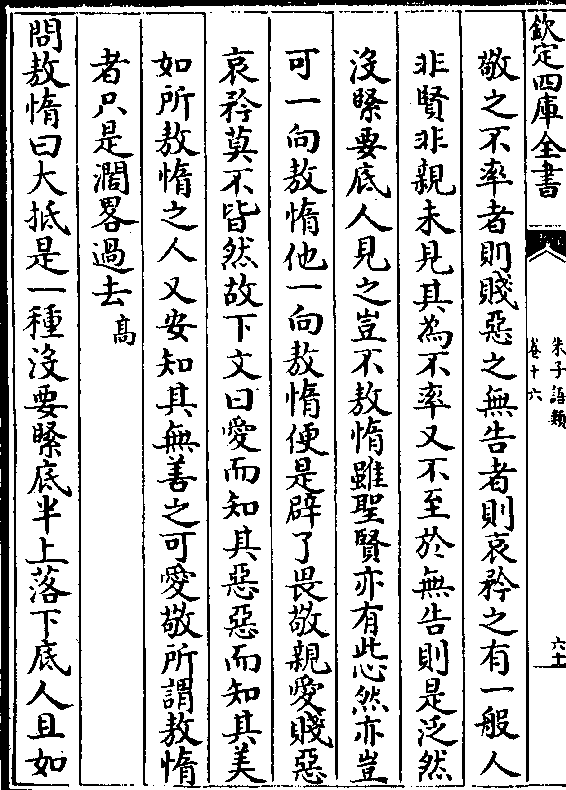 欽定四庫全書
朱子語類
卷十六
六十
敬之不率者則賤惡之無告者則哀矜之有一般人
非賢非親未見其為不率又不至於無告則是泛然
沒緊要底人見之豈不敖惰雖聖賢亦有此心然亦豈
可一向敖惰他一向敖惰便是辟了畏敬親愛賤惡
哀矜莫不皆然故下文曰愛而知其惡惡而知其美
如所敖惰之人又安知其無善之可愛敬所謂敖惰
者只是濶畧過去 高
問敖惰曰大抵是一種沒要緊底半上落下底人且如